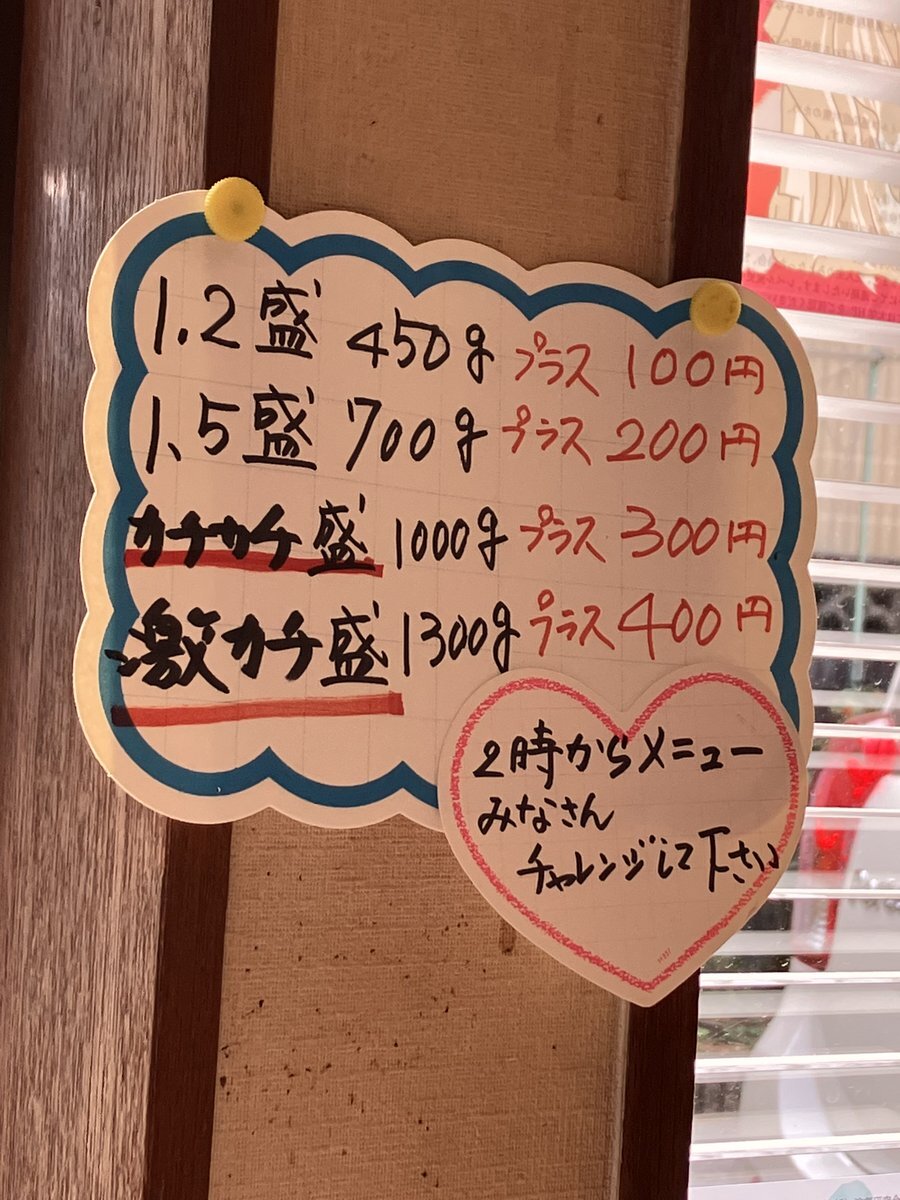 1.2盛 450g プラス 100円
1.5盛 700g プラス 200円
カチカチ盛 1000g プラス 300円
激カチ盛 1300g プラス 400円
2時からメニュー
みなさん
チャレンジして下さい